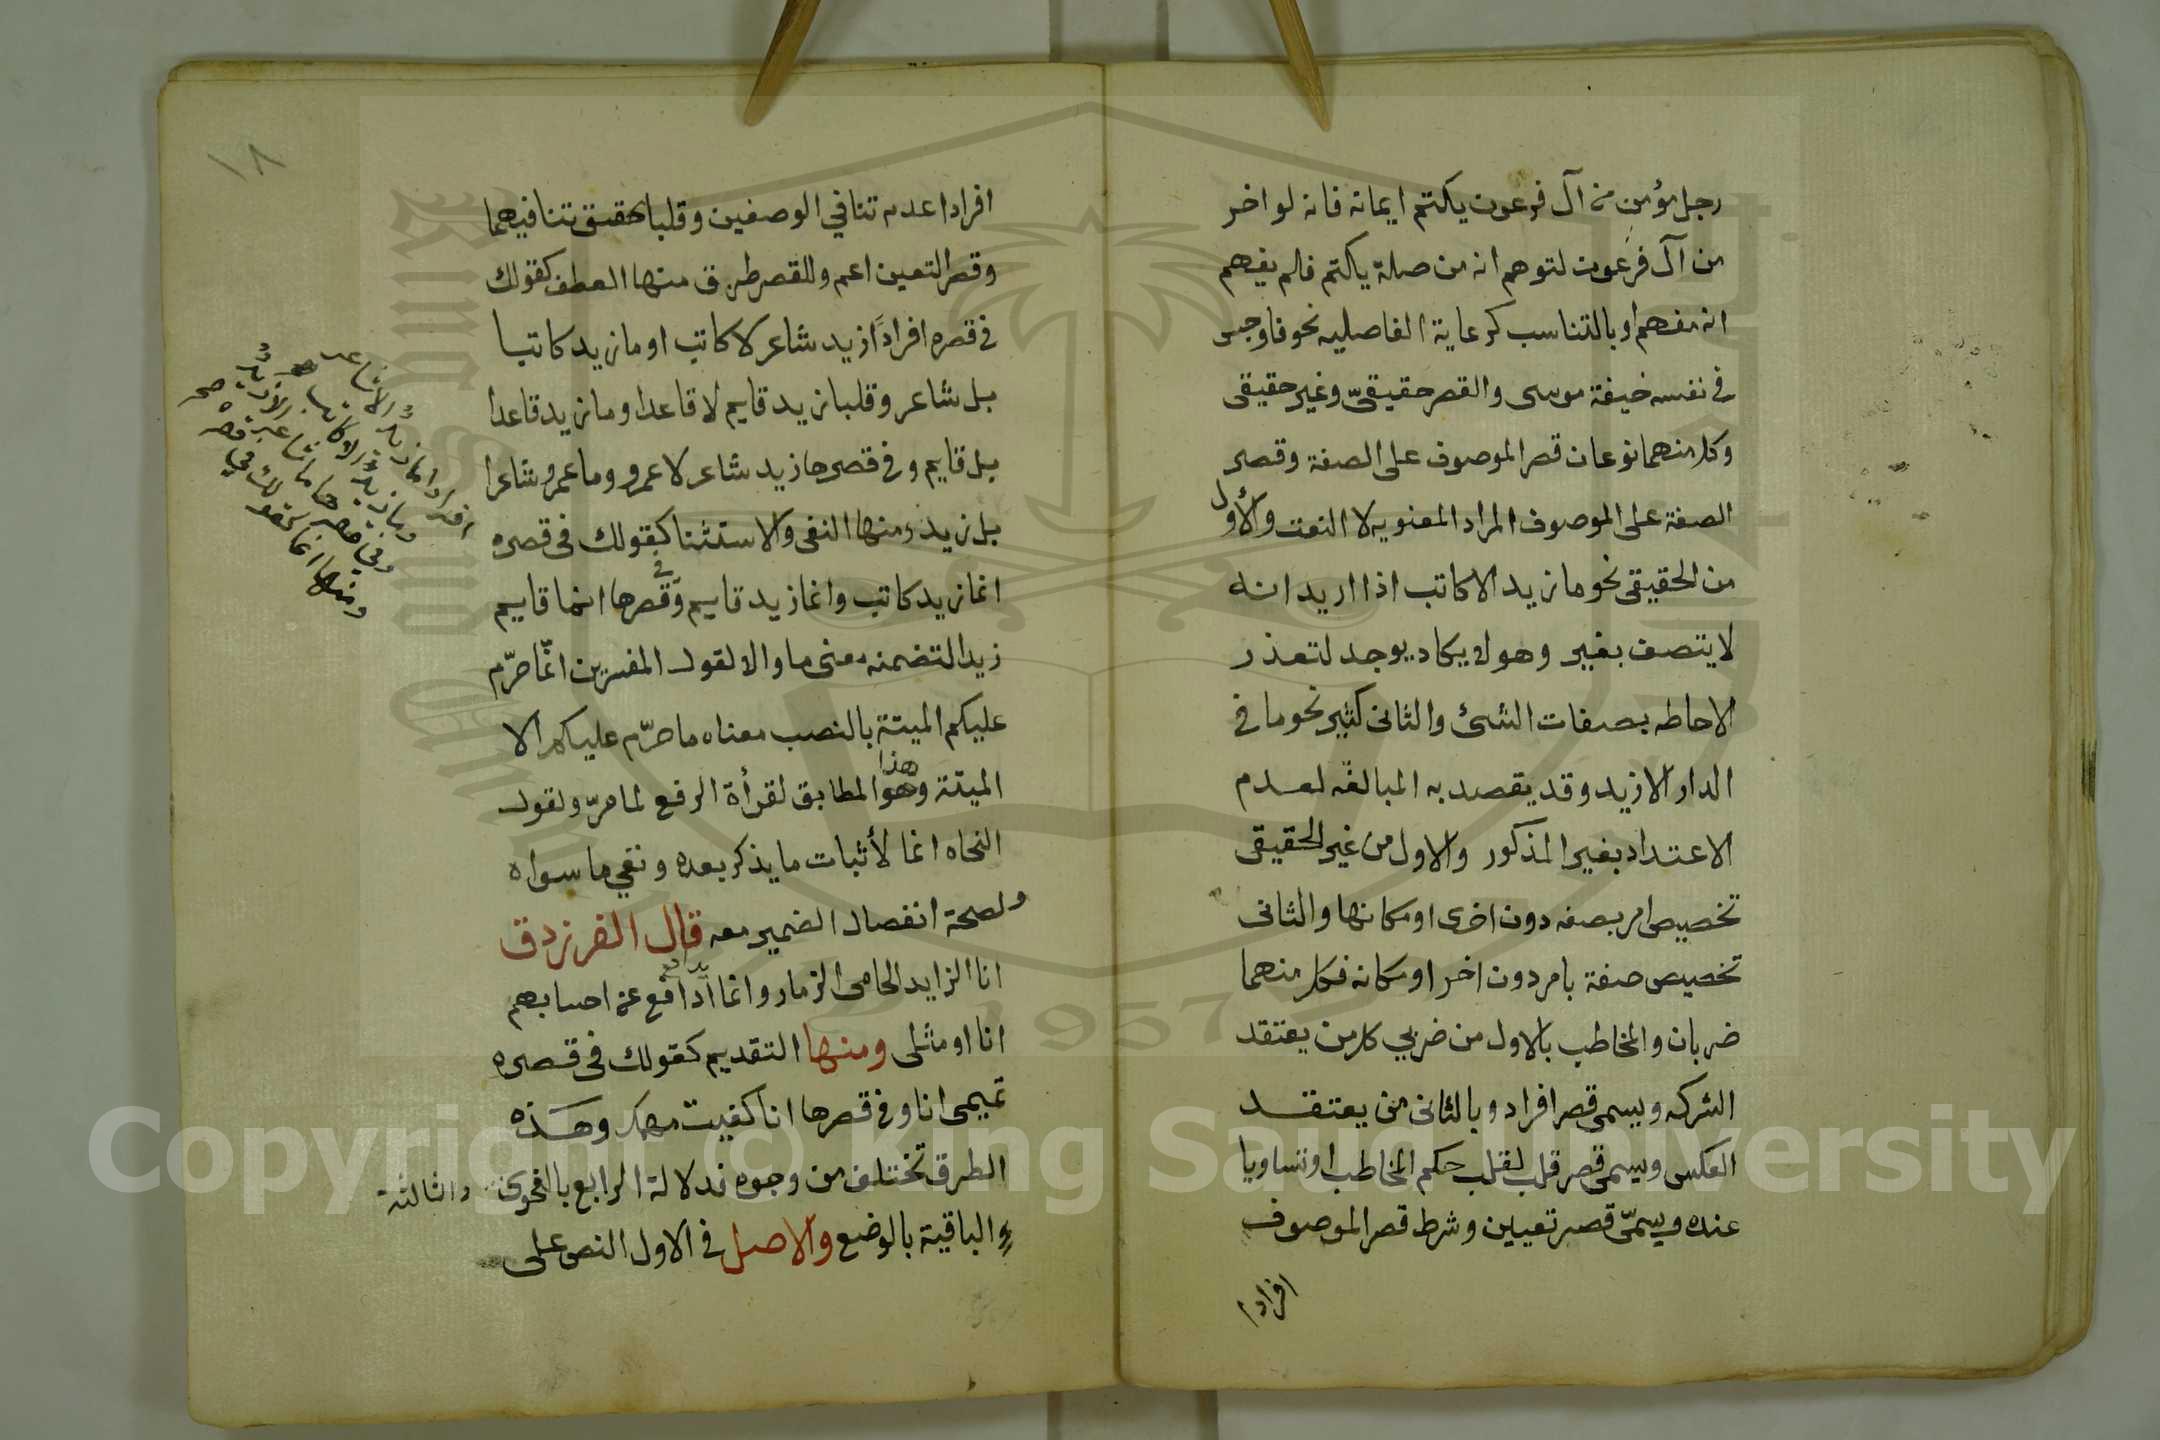 رجل مؤمن من آل فرعون يكتم ايمانه فانه لو اخر
من آل فرعون لتوهم انه من صلة يكتم فلم يفهم
انه منهم او بالتناسب كرعاية الفاصليه نحو فاوجس
في نفسه خيفة موسى والقصر حقيقيّ وغير حقيقى
وكل منهما نوعان قصر الموصوف على الصفة وقصر
الصفة على الموصوف المراد المعنويه لا النعت والأول
من الحقيقى نحو ما زيد الا كاتب اذا اريد انه
لا يتصف بغير وهو لا يكاد يوجد لتعذر
الاحاطه بصفات الشئ والثانى كثير نحو ما في
الدار الا زيد وقد يقصد به المبالغه لعدم
الاعتداد بغير المذكور والاول من غير الحقيقى
تخصيص امر بصفه دون اخرى او مكانها والثانى
تخصيص صفة بامر دون اخر او مكانه فكل منهما
ضربان والمخاطب بالاول من ضربي كل من يعتقد
الشركه ويسمى قصر افراد وبالثانى من يعتقد
العكس ويسمى قصر قلب لقلب حكم المخاطب او تساويا
عنده ويسمّى قصر تعيين وشرط قصر الموصوف
افرادا
١٨
افرادا عدم تنافي الوصفين وقلبا تحقيق تنافيهما
وقصر التعين اعم وللقصر طرق منها العطف كقولك
في قصره افرادًا زيد شاعر لا كاتب او ما زيد كاتبا
بل شاعر وقلبا زيد قايم لا قاعدا وما زيد قاعدا
بل قايم وفي قصرها زيد شاعر لا عمرو وما عمرو شاعرا
بل زيد ومنها النفى والاستثنا كقولك فى قصره
انما زيد كاتب وانما زيد قايم وفي قصرها انما قايم
زيد التضمنه معنى ما والا لقول المفسرين انّما حرّم
عليكم الميتة بالنصب معناه ما حرّم عليكم الا
الميتة وهو هذا المطابق لقرأة الرفع لما مرّ ولقول
النحاه انما لأثبات ما يذكر بعده ونفي ما سواه
ولصحة انفصال الضمير معه قال الفرزدق
انا الزايد الحامى الزمار وانما أدافع عن احسابهم
انا او مثلى ومنها التقديم كقولك فى قصره
تميمى انا وفي قصرها انا كفيت مهمك وهذه
الطرق تختلف من وجوه فدلالة الرابع بالفحوى والثالثة
والباقية بالوضع والاصل في الاول النص على
افرادا ما زيد الا شاعر
وما زيد الا كاتب
وفي قصرها ما شاعر الا زيد
ومنها انما كقولك في قصره صح
Copyright © King Saud University
1957